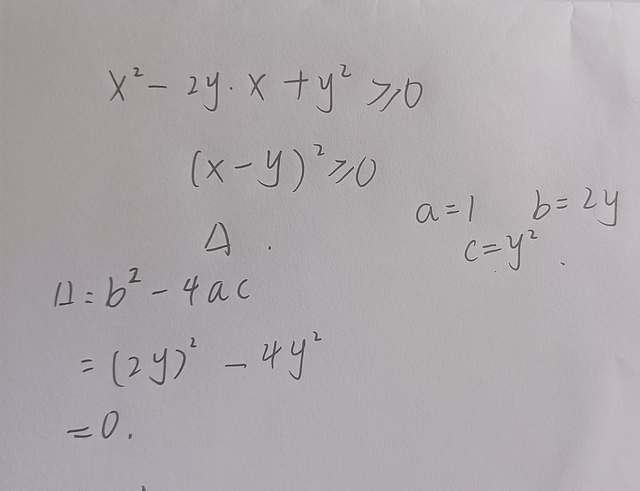 x² - 2y·x + y² ⩾0
(x-y)² ⩾0
a=1 b=2y
c=y².
Δ.
Δ=b²-4ac
=(2y)²-4y²
=0.